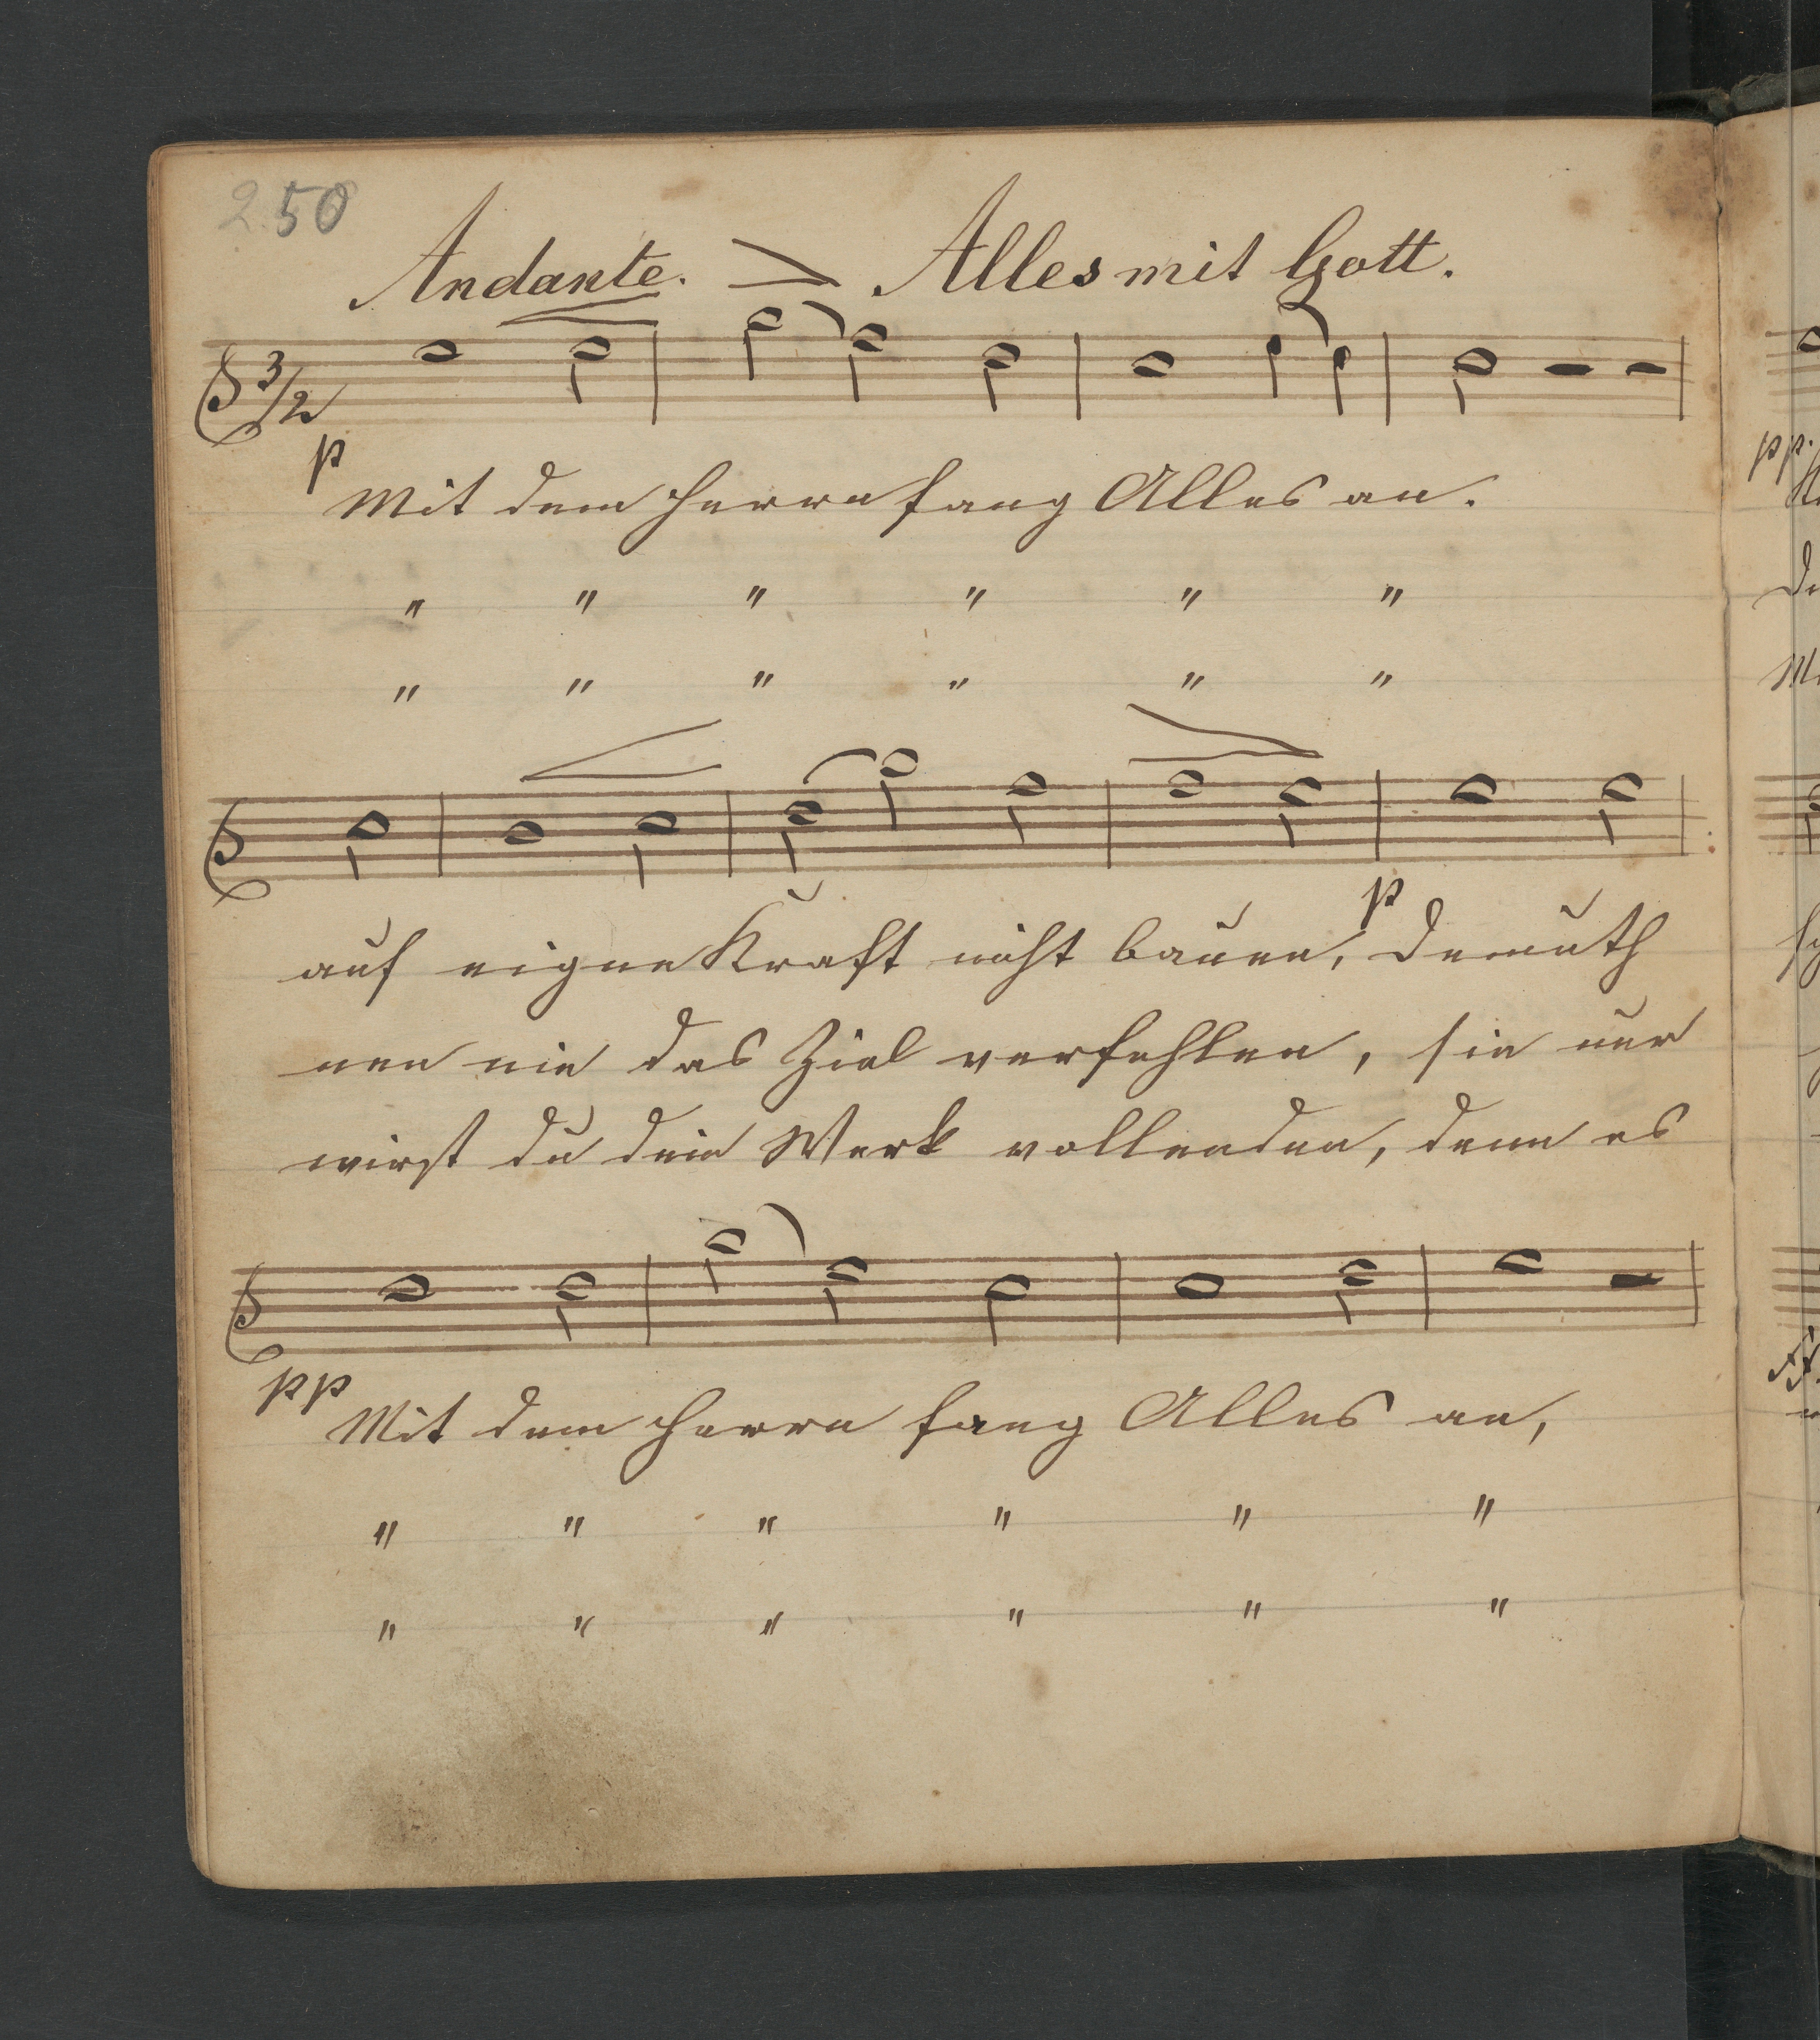 250
Andante. Alles mit Gott.
3/2
p
Mit dem Herrn fang Alles an.
" " " " " "
" " " " " "
p
auf eigne Kraft nicht bauen, Demuth
nen nie das Ziel verfehlen, sie nur
wirst du dein Werk vollenden, denn es
pp
Mit dem Herrn fang Alles an,
" " " " " "
" " " " " "
pp.
De
ff.